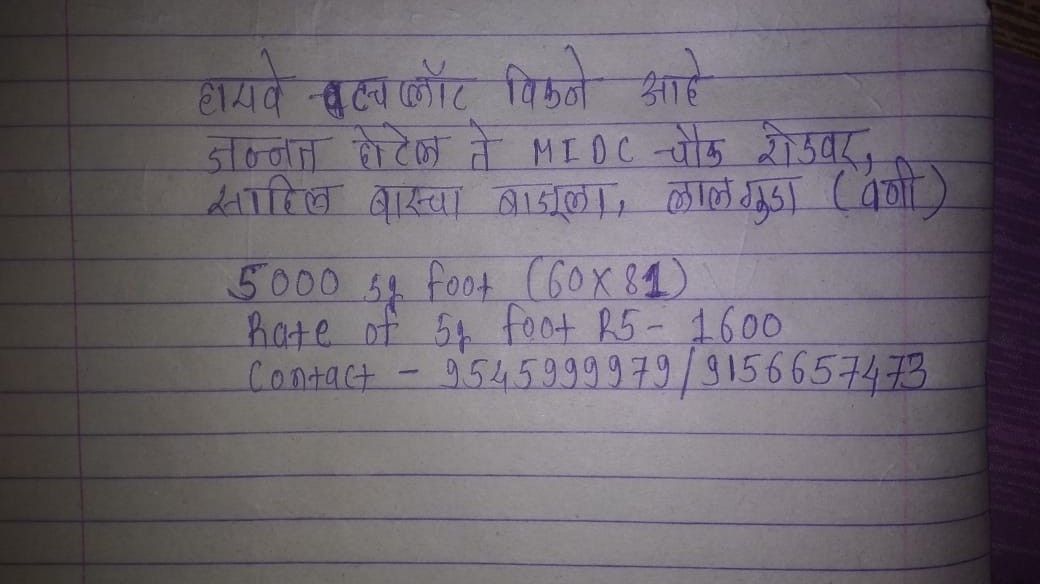 हायवे टच प्लॉट विकने आहे
जन्नत होटेल ते MIDC चौक रोडवर,
साहिल बारच्या बाजूला, लालगुडा (वणी)
5000 sq foot (60X81)
Rate of sq foot RS- 1600
Contact - 9545999979/9156657473